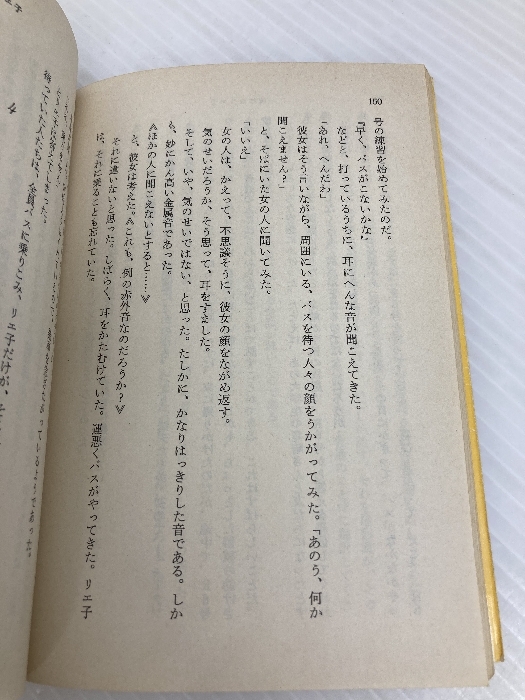 160
号の練習を始めてみたのだ。
『早く、バスがこないかな』
などと、打っているうちに、耳にへんな音が聞こえてきた。
「あれ、へんだわ」
彼女はそう言いながら、周囲にいる、バスを待つ人々の顔をうかがってみた。「あのう、何か
聞こえません?」
と、そばにいた女の人に聞いてみた。
「いいえ」
女の人は、かえって、不思議そうに、彼女の顔をながめ返す。
気のせいだろうか、そう思って、耳をすました。
そして、いや、気のせいではない、と思った。たしかに、かなりはっきりした音である。しか
も、妙にかん高い金属音であった。
≪ほかの人に聞こえないとすると……≫
と、彼女は考えた。≪これも、例の赤外音なのだろうか?≫
それに違いないと思った。しばらく、耳をかたむけていた。運悪くバスがやってきた。リエ子
は、それに乗ることも忘れていた。
待っていた人たちは、全員バスに乗りこみ、リエ子だけが、